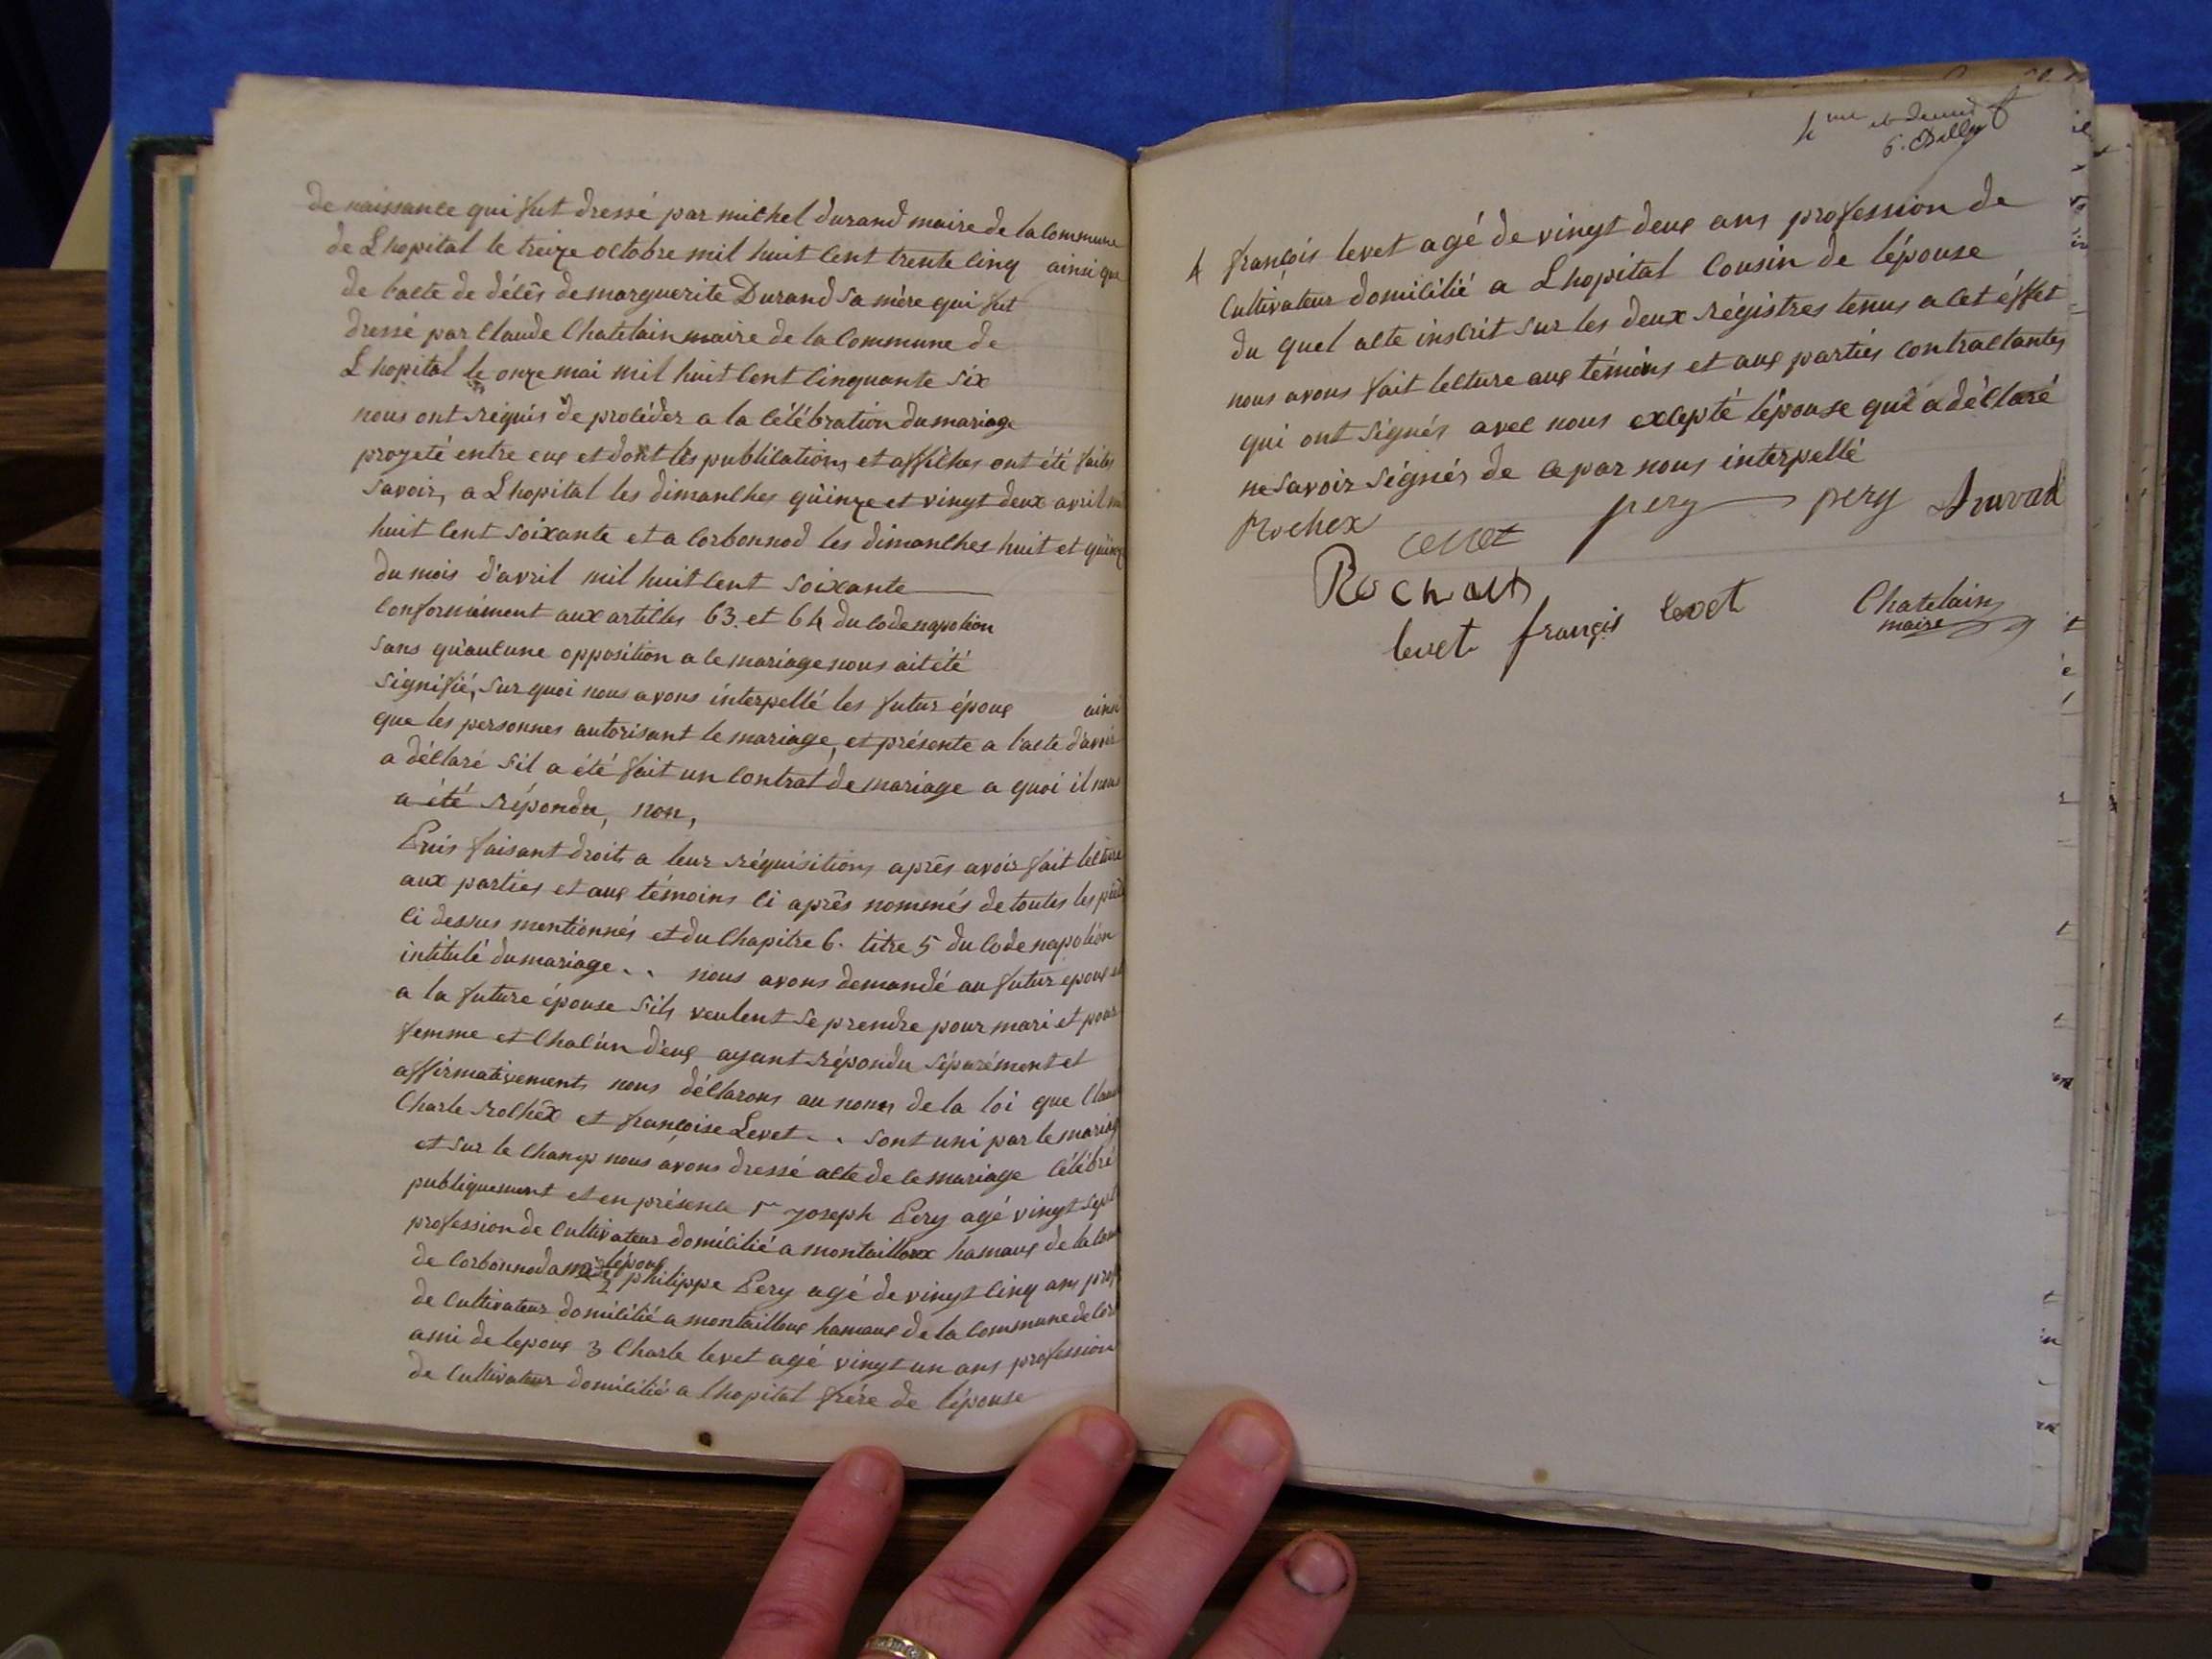 de naissance qui fut dressé par michel durand maire de la commune
de Lhopital le treize octobre mil huit cent trente cinq ainsi que
de l'acte de décès de marguerite Durand sa mère qui fut
dressé par Claude Chatelain maire de la Commune de
Lhopital le onze mai mil huit cent cinquante six
nous ont réquis de procéder a la célébration du mariage
projeté entre eux et dont les publications et affiches ont été faites
savoir, a Lhopital les dimanches quinze et vingt deux avril
huit cent soixante et a Corbonnod les dimanches huit et quinze
du mois d'avril mil huit cent soixante
Conformément aux articles 63. et 64 du Code napoléon
sans qu'aucune opposition a ce mariage nous ait été
signifié, sur quoi nous avons interpellé les futur époux ainsi
que les personnes autorisant le mariage, et présente a l'acte d'avoir
a déclaré s'il a été fait un Contrat de mariage a quoi il nous
a été répondu, non,
Puis faisant droit a leur réquisitions après avoir fait lecture
aux parties et aux témoins ci après nommés de toutes les
ci dessus mentionnés et du Chapitre 6. titre 5 du Code napoléon
intitulé du mariage . . nous avons demandé au futur epoux et
a la future épouse s'ils veulent se prendre pour mari et pour
femme et Chacun d'eux ayant répondu séparément et
affirmativement nous déclarons au nom de la loi que
Charle rochex et françoise Levet . . sont uni par le mariage
et sur le champ nous avons dressé acte de ce mariage célébré
publiquement et en présence 1er joseph Pery agé vingt sept
profession de Cultivateur domicilié a montailloux hamaux de la
de Corbonnod ami de lépoux
2 philippe Pery agé de vingt cinq ans
de Cultivateur domicilié a montailloux hamaux de la Commune de
ami de lepoux 3 Charle levet agé vingt un ans profession
de Cultivateur domicilié a lhopital frère de l'épouse
4me et
6.
4 françois levet agé de vingt deux ans profession de
Cultivateur domicilié a Lhopital Cousin de l'épouse
du quel acte inscrit sur les deux régistres tenus a cet éffet
nous avons fait lecture aux témoins et aux parties contractantes
qui ont signés avec nous excepté l'épouse qui a déclaré
ne savoir signés de ce par nous interpellé
Rochex levet pery pery
Rochaix
levet françois levet Chatelain
maire